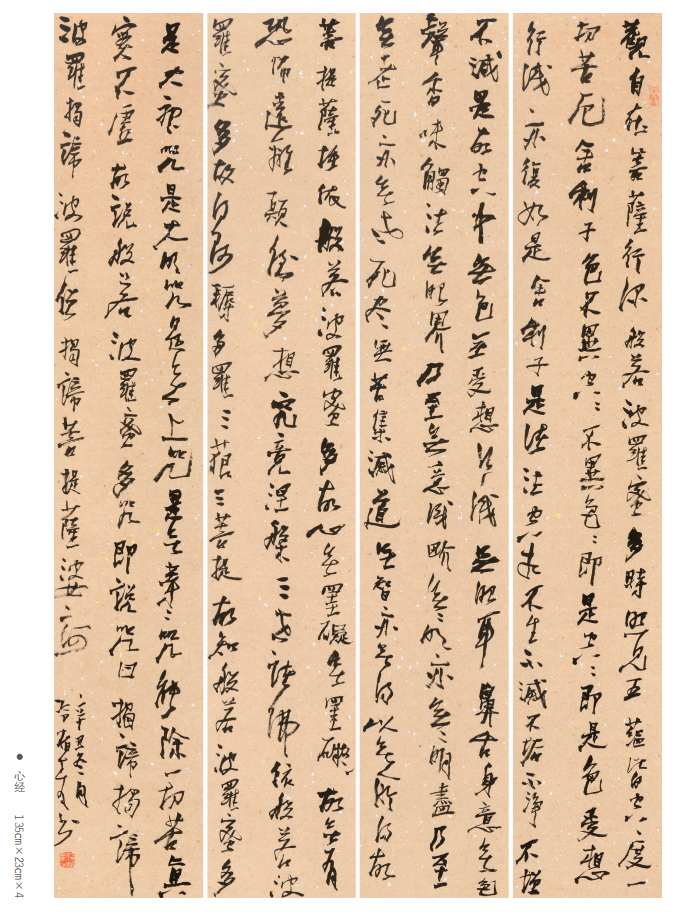 觀自在菩薩行深般若波羅蜜多時照見五蘊皆空度一
切苦厄舍利子色不異空〻不異色〻即是空〻即是色受想
行識亦復如是舍利子是諸法空相不生不滅不垢不淨不增
不減是故空中無色無受想行識無眼耳鼻舌身意無色
聲香味觸法無眼界乃至無意識界無〻明亦無〻明盡乃至
無老死亦無老死盡無苦集滅道無智亦無得以無所得故
菩提薩埵依般若波羅蜜多故心無罣礙無罣礙故無有
恐怖遠離顛倒夢想究竟涅槃三世諸佛依般若波
羅蜜多故得阿耨多羅三藐三菩提故知般若波羅蜜多
是大神咒是大明咒是無上咒是無等〻咒能除一切苦真
實不虛故說般若波羅蜜多咒即說咒曰揭諦揭諦
波羅揭諦波羅僧揭諦菩提薩婆訶
辛丑冬月
書
● 心经 135cm×23cm×4